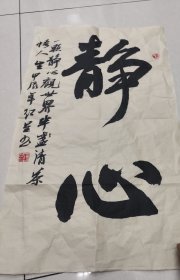 静心
一颗静心观世界半盏清茶
悟人生甲辰年